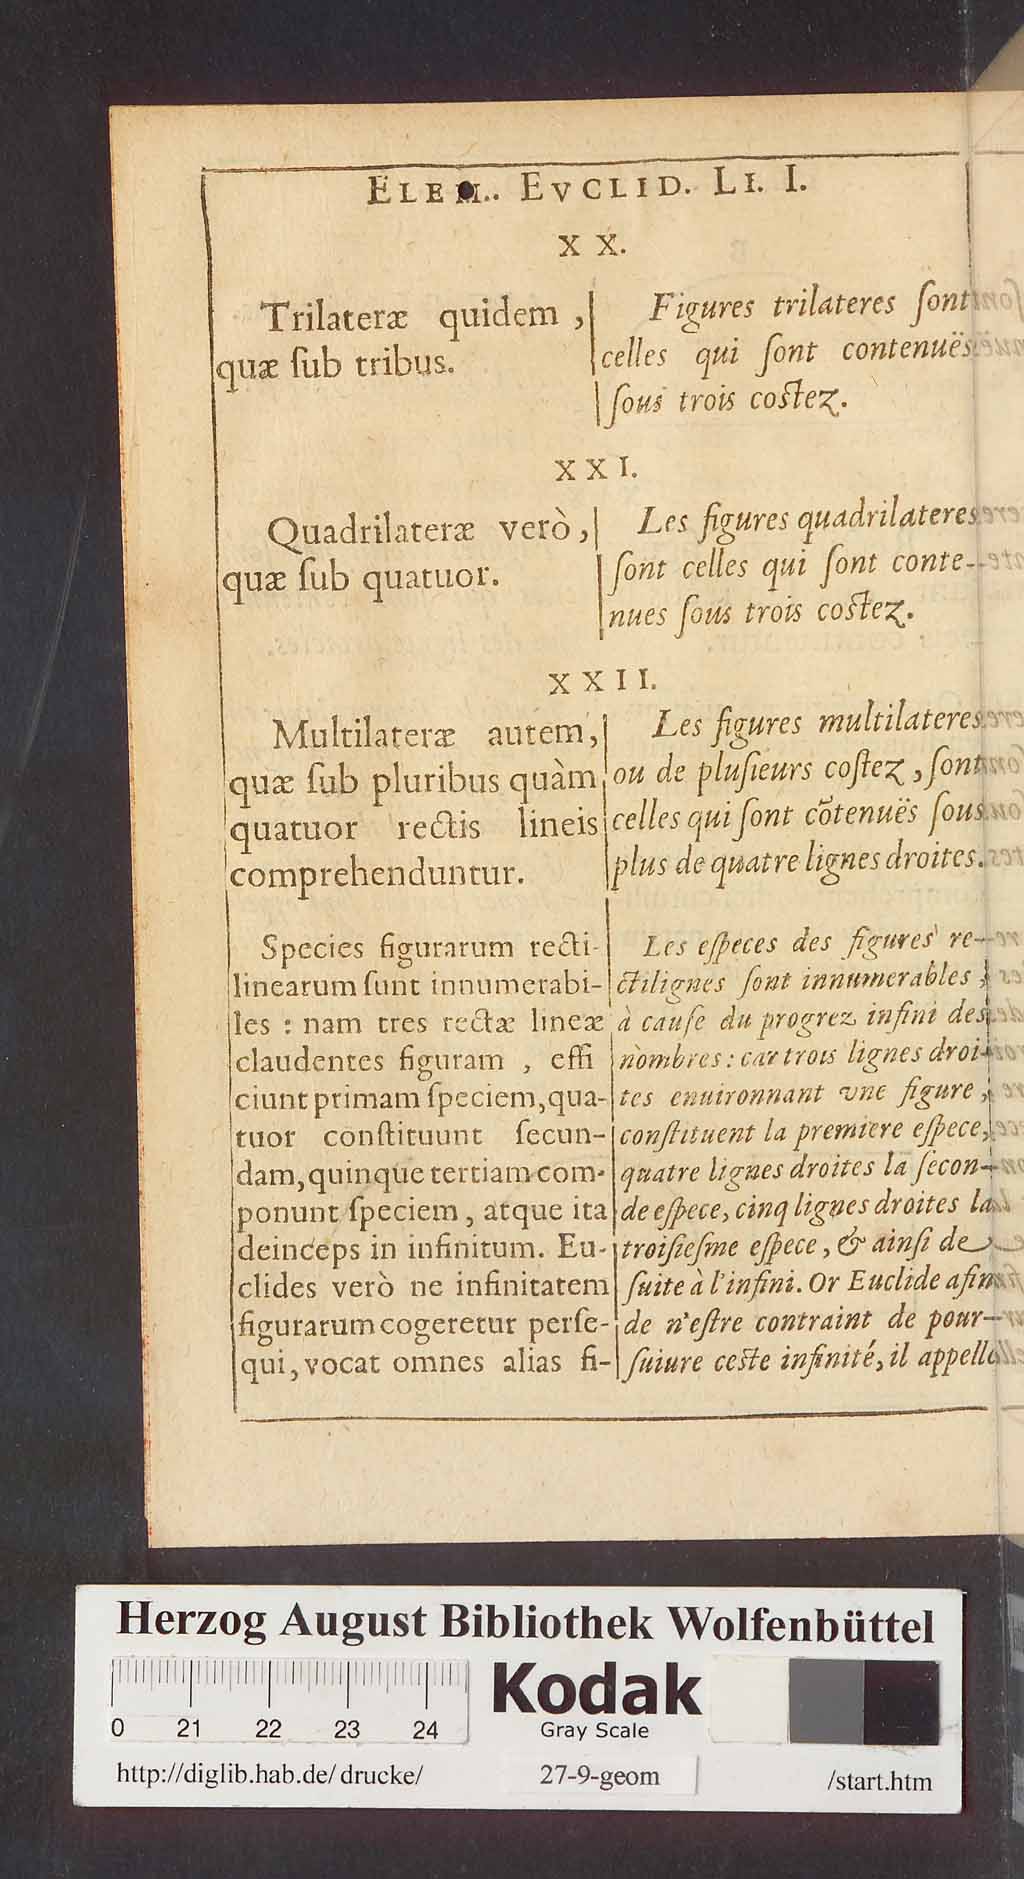 ELEM.. EVCLID. LI. I.
X X.
Trilateræ quidem ,
quæ ſub tribus.
Figures trilateres ſont
celles qui ſont contenuës
ſous trois coſtez.
X X I.
Quadrilateræ verò,
quæ ſub quatuor.
Les figures quadrilateres
ſont celles qui ſont conte-
nues ſous trois coſtez.
X X I I.
Multilateræ autem,
quæ ſub pluribus quàm
quatuor rectis lineis
comprehenduntur.
Les figures multilateres
ou de pluſieurs coſtez , ſont
celles qui ſont cõtenuës ſous
plus de quatre lignes droites.
Species figurarum recti-
linearum ſunt innumerabi-
les : nam tres rectæ lineæ
claudentes figuram , effi
ciunt primam ſpeciem, qua-
tuor conſtituunt ſecun-
dam, quinque tertiam com-
ponunt ſpeciem , atque ita
deinceps in infinitum. Eu-
clides verò ne infinitatem
figurarum cogeretur perſe-
qui, vocat omnes alias fi-
Les eſpeces des figures re-
ctilignes ſont innumerables ,
à cauſe du progrez infini des
nombres : car trois lignes droi-
tes enuironnant vne figure ,
conſtituent la premiere eſpece,
quatre lignes droites la ſecon-
de eſpece, cinq lignes droites la
troiſieſme eſpece , & ainſi de
ſuite à l'infini. Or Euclide afin
de n'eſtre contraint de pour-
ſuiure ceſte infinité, il appelle
Herzog August Bibliothek Wolfenbüttel
Kodak
Gray Scale
0 21 22 23 24
http://diglib.hab.de/ drucke/ 27-9-geom /start.htm